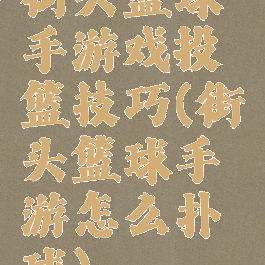 街头篮球
手游戏投
篮技巧(街
头篮球手
游怎么扑
球)